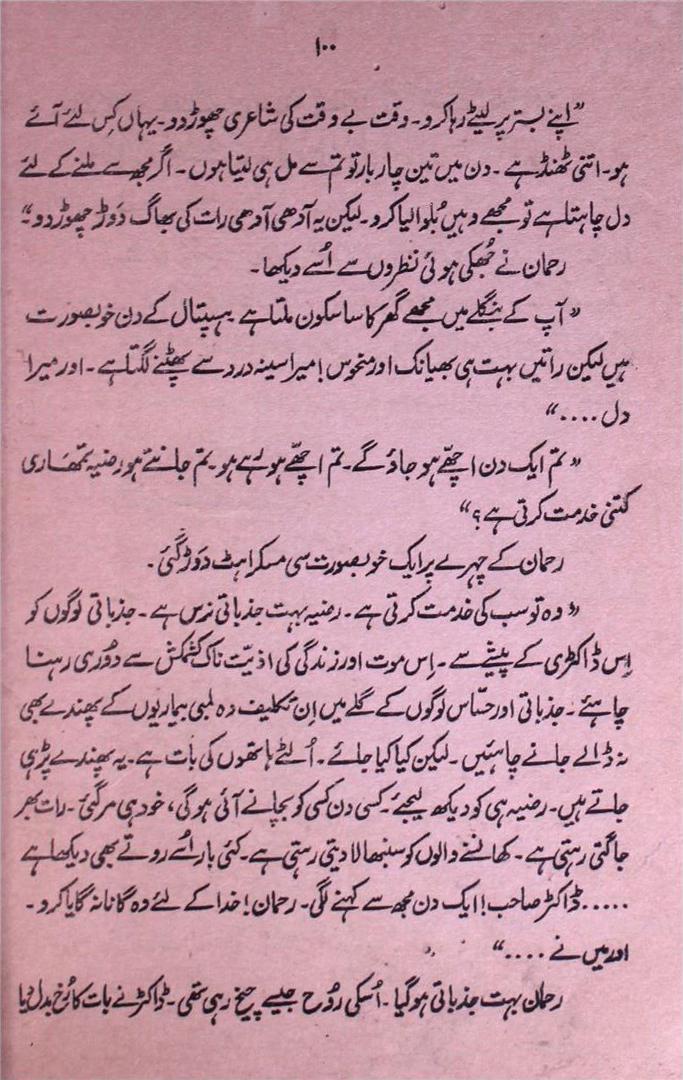 ۱۰۰
”اپنے بستر پر لیٹے رہا کرو۔ وقت بے وقت کی شاعری چھوڑ دو۔ یہاں کس لئے آئے
ہو۔ اتنی ٹھنڈ ہے۔ دن میں تین چار بار تو تم سے مل ہی لیتا ہوں۔ اگر مجھ سے ملنے کے لئے
دل چاہتا ہے تو مجھے وہیں بُلوا لیا کرو۔ لیکن یہ آدھی آدھی رات کی بھاگ دَوڑ چھوڑ دو۔“
رحمان نے جُھکی ہوئی نظروں سے اُسے دیکھا۔
”آپ کے بنگلے میں مجھے گھر کا سا سکون ملتا ہے ہسپتال کے دن خوبصورت
ہیں لیکن راتیں بہت ہی بھیانک اور منحوس! میرا سینہ درد سے پھٹنے لگتا ہے۔ اور میرا
دل ....“
”تم ایک دن اچھّے ہو جاؤ گے۔ تم اچھّے ہو رہے ہو۔ تم جانتے ہو رضیہ تمھاری
کتنی خدمت کرتی ہے؟“
رحمان کے چہرے پر ایک خوبصورت سی مسکراہٹ دَوڑ گئی۔
”وہ تو سب کی خدمت کرتی ہے۔ رضیہ بہت جذباتی نرس ہے۔ جذباتی لوگوں کو
اِس ڈاکٹری کے پیشے سے۔ اِس موت اور زندگی کی اذیّت ناک کشمکش سے دُوری رہنا
چاہئے۔ جذباتی اور حسّاس لوگوں کے گلے میں اِن تکلیف دہ لمبی بیماریوں کے پھندے بھی
نہ ڈالے جانے چاہئیں۔ لیکن کیا کیا جائے۔ اُلٹے ہاتھوں کی بات ہے۔ یہ پھندے پڑ ہی
جاتے ہیں۔ رضیہ ہی کو دیکھ لیجئے۔ کسی دن کسی کو بچانے آئی ہو گی، خود ہی مر گئی۔ رات بھر
جاگتی رہتی ہے۔ کھانسنے والوں کو سنبھالا دیتی رہتی ہے۔ کئی بار اُسے روتے بھی دیکھا ہے
..... ڈاکٹر صاحب! ایک دن مجھ سے کہنے لگی۔ رحمان! خدا کے لئے وہ گانا نہ گایا کرو۔
اور میں نے ....“
رحمان بہت جذباتی ہو گیا۔ اُسکی رُوح جیسے چیخ رہی تھی۔ ڈاکٹر نے بات کا رُخ بدل دیا